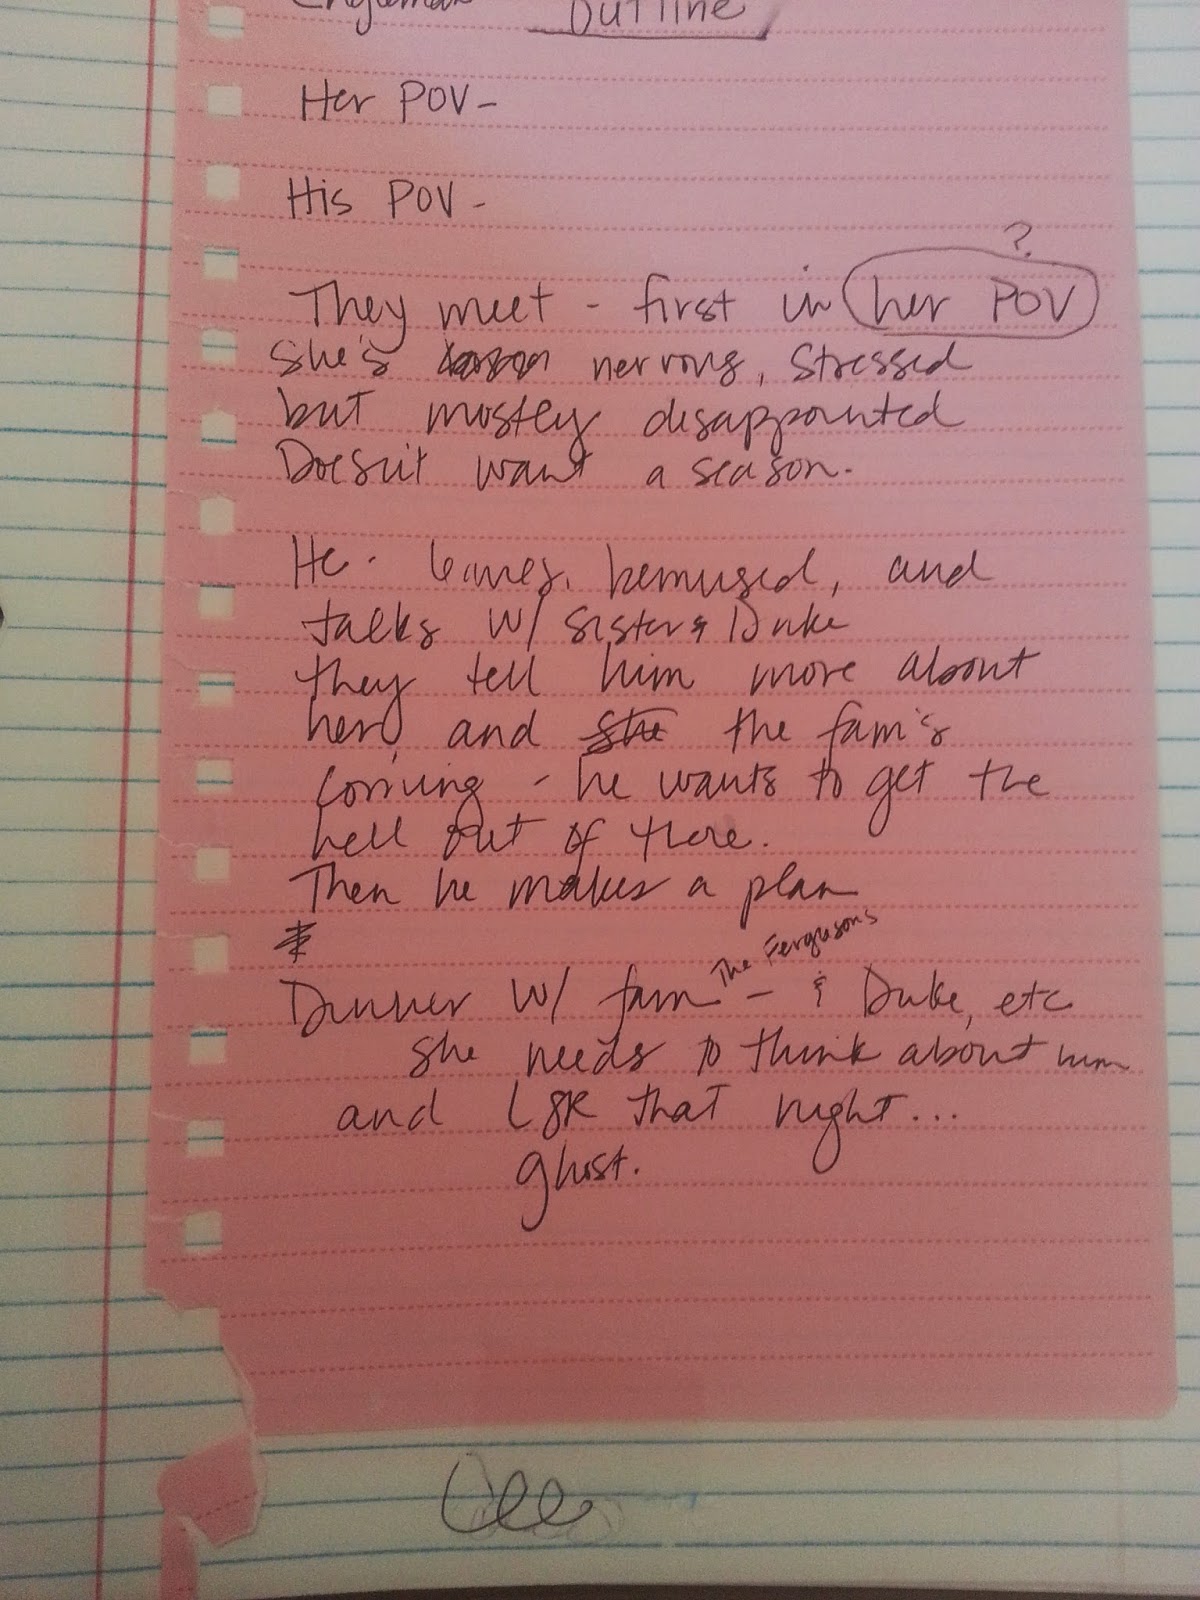 Outline
Her POV -
His POV -
?
They meet - first in her POV
She's nervous, stressed
but mostly disappointed
Doesn't want a season.
He - leaves, bemused, and
talks w/ sister & Duke
they tell him more about
her, and she the fam's
coming - he wants to get the
hell out of there.
Then he makes a plan
*
The Fergusons
Dinner w/ fam - & Duke, etc
she needs to think about him
and that night...
ghost.